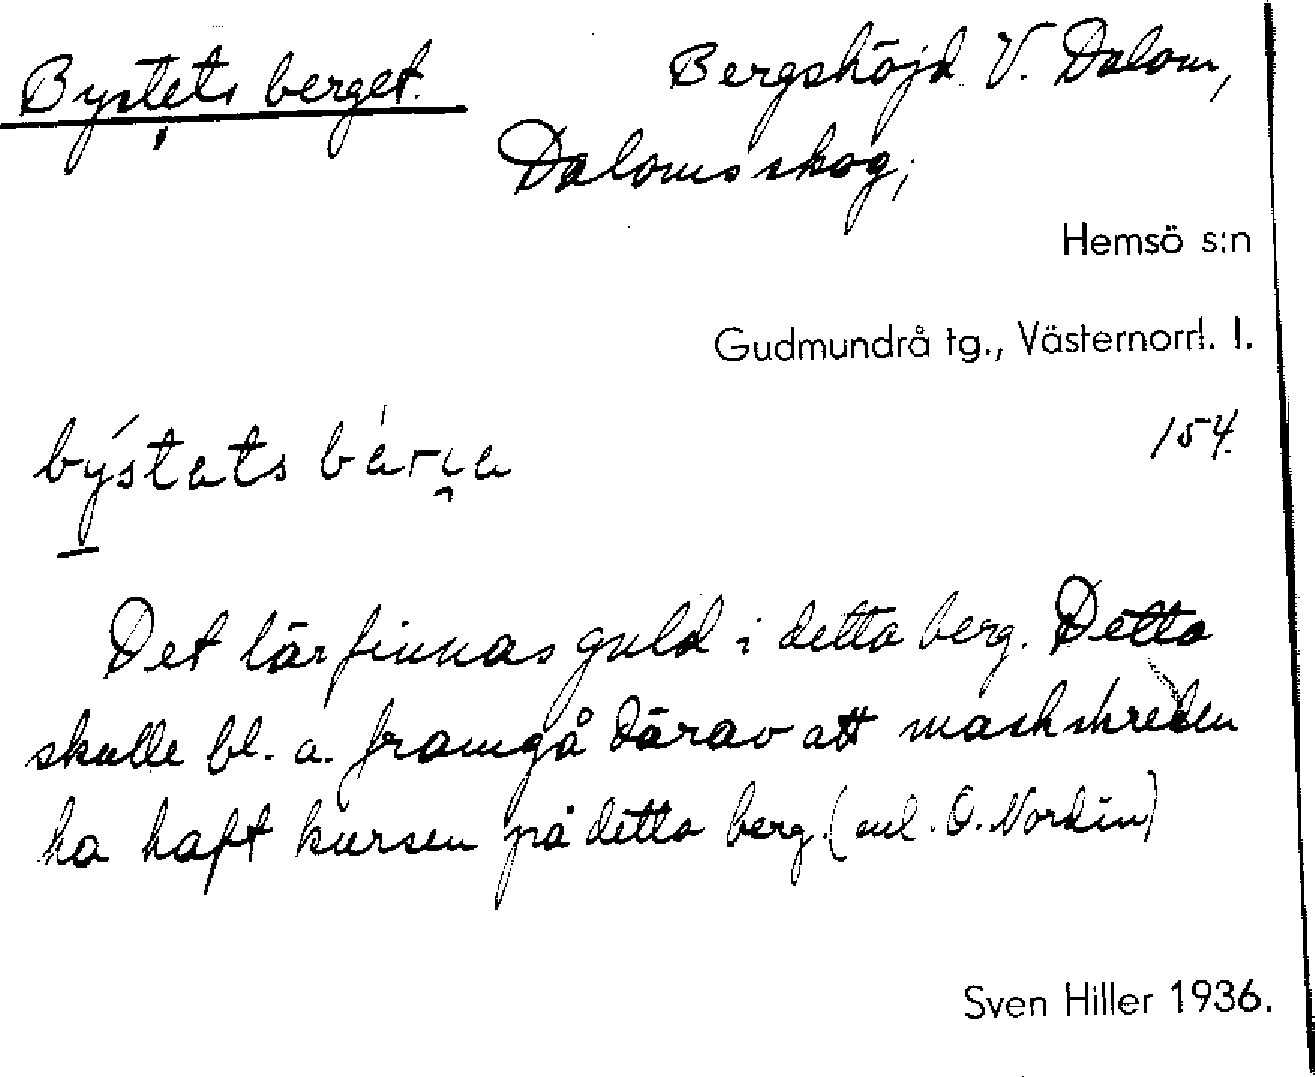 Bystets berget. Bergshöjd V. Dalom,
Daloms skog,
Hemsö s:n
Gudmundrå tg., Västernorrl. l.
154.
Det lär finnas guld i detta berg. Detta
skulle bl. a. framgå därav att maskskreden
ha haft kursen på detta berg. (enl. O. Nordin)
Sven Hiller 1936.